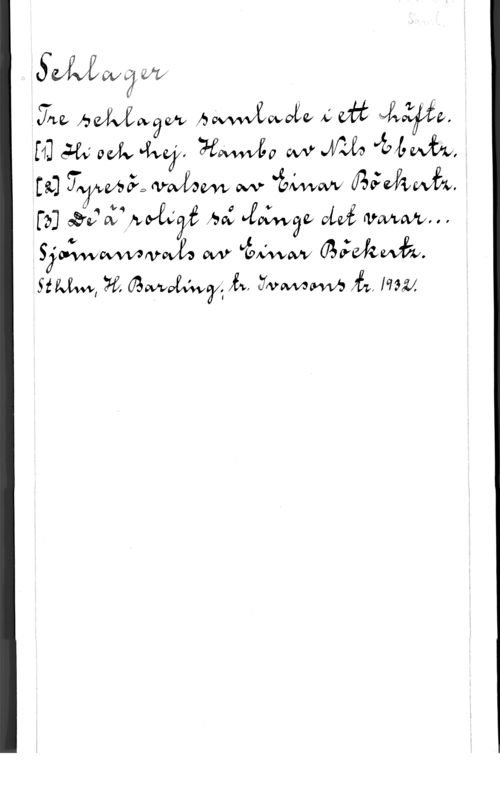 Saml.
Schlager
Tre schlager samlade i ett häfte.
[1] Hi och hej. Hambo av Nils Ebertz.
[2] Tyresö-valsen av Einar Böckertz.
[3] De' ä' roligt så länge det varar...
Sjömansvals av Einar Böckertz.
Sthlm, H. Barding; tr. Ivarsons tr. 1932.